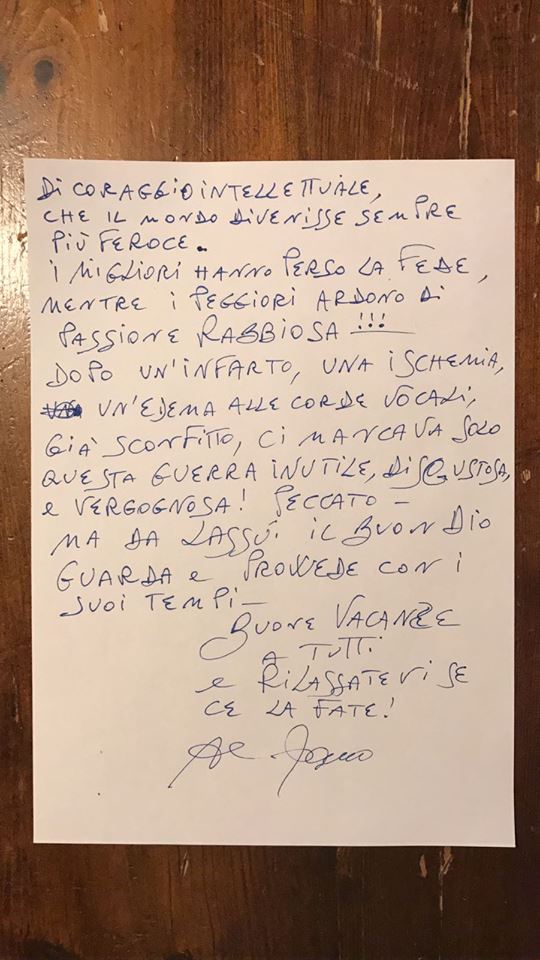 Di CORAGGIO INTELLETTUALE,
CHE IL MONDO DIVENISSE SEMPRE
PIÙ FEROCE.
i MiGLiORi HANNO PERSO LA FEDE,
MENTRE i PEGGIORI ARDONO Di
PASSIONE RABBIOSA !!!
DOPO UN'INFARTO, UNA iSCHEMiA,
UN'EDEMA ALLE CORDE VOCALi,
GiÀ SCONFITTO, Ci MANCAVA SOLO
QUESTA GUERRA INUTILE, DISGUSTOSA,
e VERGOGNOSA! PECCATO -
MA DA LASSÙ iL BUON DiO
GUARDA e PROVVEDE CON i
SUOi TEMPi -
BUONE VACANZE
A TUTTi
e RiLASSATEVi SE
CE LA FATE!
Al